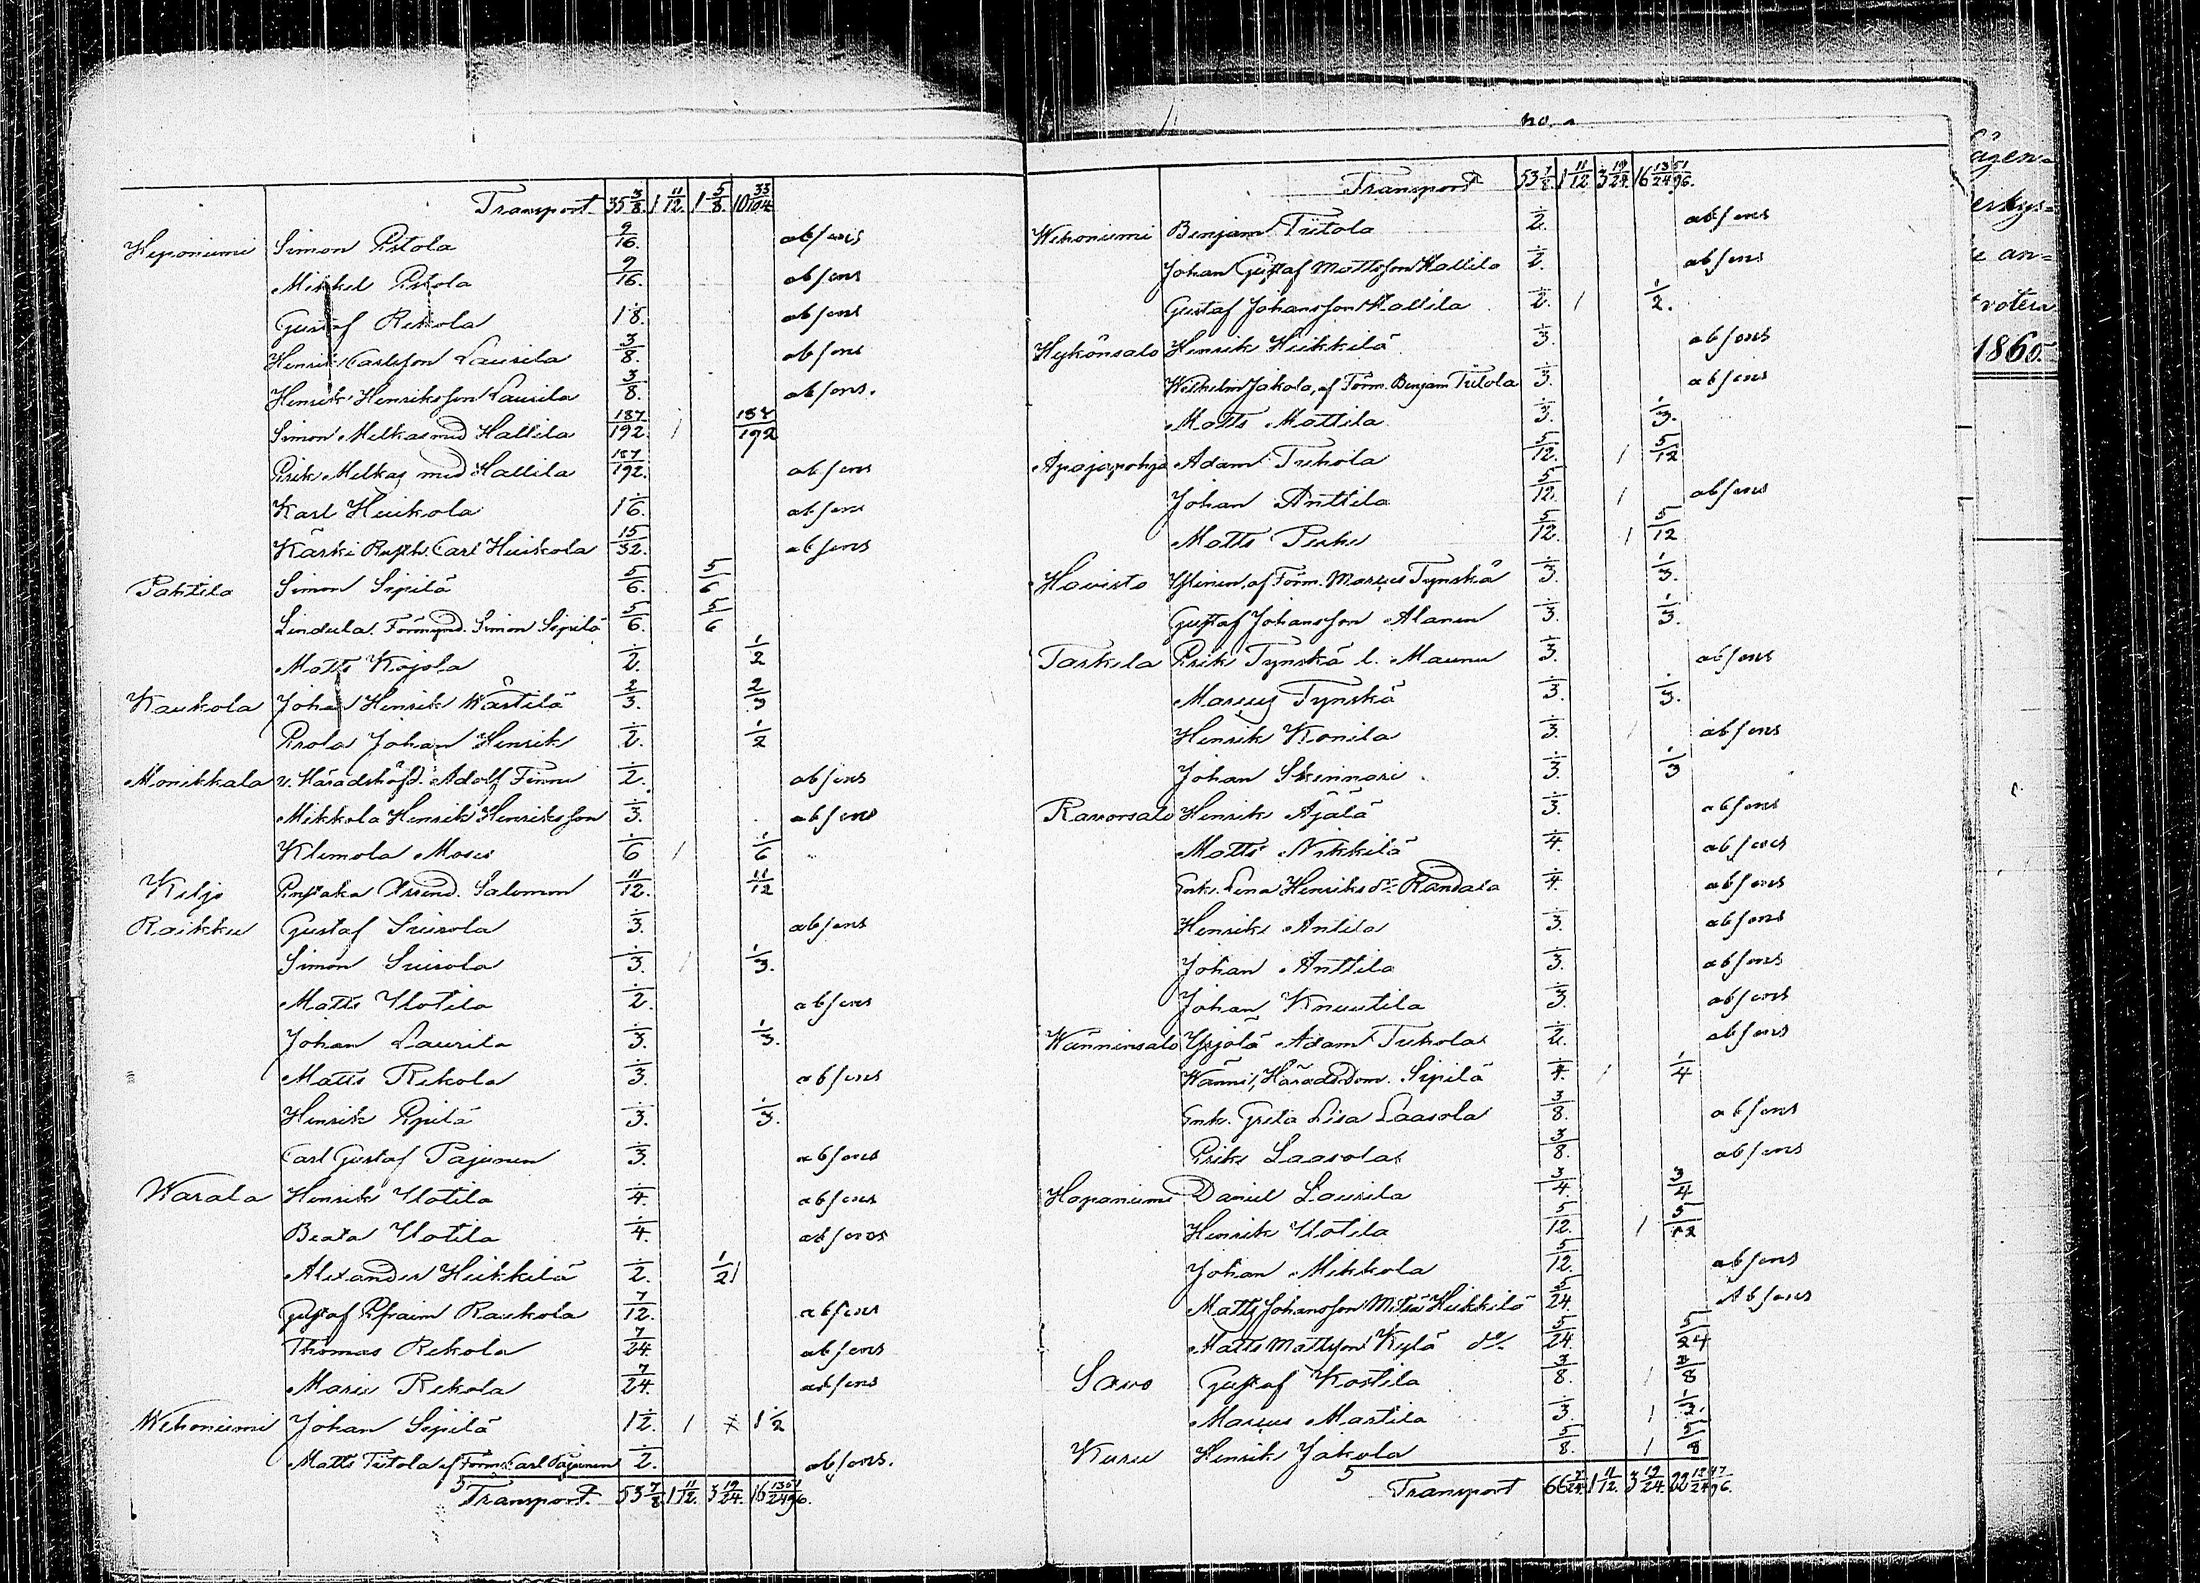 Transport. 35 3/8. 1 11/12. 1 5/8. 10
Heponiemi Simon Pistola 9/16. absens
Mikkel Pistola 9/16. absens
Gustaf Rekola 1/8. absens
Henrik Carlsson Laurila 3/8. absens
Henrik Henriksson Laurila 3/8. absens.
Simon Melkas med Hallila 187/192. 1 187/192
Erik Melkas med Hallila 187/192. absens
Karl Huikola 1/6. absens
Kärki Carl Huikola 15/32. absens
Pahtila Simon Sipilä 5/6. 5/6
Lindula. Förmynd. Simon Sipilä 5/6. 5/6
Matts Kojola 1/2. 1/2
Kaukola Johan Henrik Kåstilä 2/3. 2/3
Erola Johan Henrik 1/2. 1/2
Monikkala v. Häradshöfd. Adolf Finne 1/2. absens
Mikkola Henrik Henriksson 1/3. absens
Klemola Moses 1/6 1 1/6
Kiljo Arrend. Salomon 11/12. 11/12
Raikku Gustaf Suisola 1/3. absens
Simon Suisola 1/3. 1 1/3.
Matts Ylotila 1/2. absens
Johan Laurila 1/3. 1/3.
Matts Rekola 1/3. absens
Henrik Epilä 1/3. 1/3.
Carl Gustaf Pajunen 1/3. absens
Warala Henrik Ylotila 1/4. absens
Beata Ylotila 1/4. absens
Alexander Heikkilä 1/2. 1/2
Gustaf Efraim Raukola 7/12. absens
Thomas Rekola 7/24. absens
Maria Rekola 7/24. absens
Wehoniemi Johan Sipilä 1 1/2. 1 1 1/2
Matts Tiitola af Förm. Carl Pajunen 1/2. absens.
5 Transport. 53 7/8. 1 11/12. 3 19/24. 16 13/24 51/96.
no.
Transport 53 7/8. 1 11/12. 3 19/24. 16 13/24 51/96.
Wehoniemi Benjam Tiitola 1/2. absens
Johan Gustaf Mattsson Hallila 1/2. absens
Gustaf Johansson Hallila 1/2. 1 1/2.
Hykönsalo Henrik Heikkilä 1/3. absens
Wilhelm Jakola, af Förm. Benjam Tiitola 1/3. absens
Matts Mattila 1/3. 1/3.
Apajapohja Adam Tuhola 5/12. 1 5/12
Johan Anttila 5/12. 1 absens
Matts Perho 5/12. 1 5/12
Hovisto Ylinen, af Förm. Marcus Tynskä 1/3. 1/3.
Gustaf Johansson Alanen 1/3. 1/3.
Taskila Erik Tynskä l. Maunu 1/3. absens
Marcus Tynskä 1/3. 1/3.
Henrik Konila 1/3. absens
Johan Skinnari 1/3. 1/3
Ravonsalo Henrik Äjälä 1/3. absens
Matts Nikkilä 1/4. absens
Enk. Lena Henriks dr Randala 1/4. absens
Henrik Antila 1/3. absens
Johan Anttila 1/3. absens
Johan Knuutila 1/3. absens
Wänninsalo Yrjölä Adam Tuhola 1/2. absens
Wänni, Härads Dom. Sipilä 1/4. 1 1/4
Enk. Greta Lisa Laasola 3/8. absens
Erik Laasola 3/8. absens
Hapaniemi Daniel Laurila 3/4. 3/4
Henrik Ylotila 5/12. 1 5/12
Johan Mikkola 5/12. absens
Matts Johansson Heikkilä 5/24. Absens
Matts Mattsson Kylä do 5/24. 5/24
Savo Gustaf Kostila 3/8. 1 3/8
Marcus Martila 1/3. 1 1/3.
Kuru Henrik Jakola 5/8. 1 5/8
5 Transport 66 7/24. 1 11/12. 3 19/24. 22
ågen-
erkys-
an-
votera
1865.